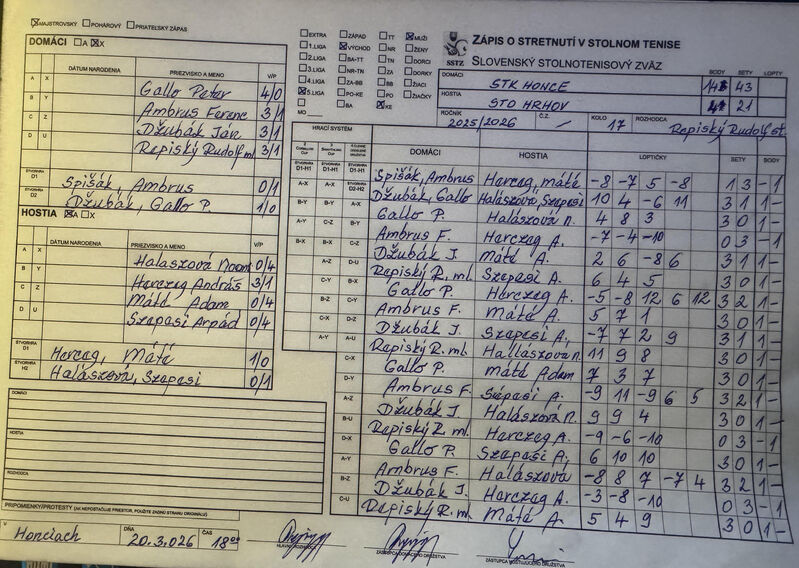 ☒MAJSTROVSKÝ ☐POHÁROVÝ ☐PRIATEĽSKÝ ZÁPAS
DOMÁCI ☐A ☒X
DÁTUM NARODENIA PRIEZVISKO A MENO V/P
A X Gallo Peter 4/0
B Y Ambrus Ferenc 3/1
C Z Džubák Ján 3/1
D U Repiský Rudolf ml 3/1
ŠTVORHRA D1 Spišák, Ambrus 0/1
ŠTVORHRA D2 Džubák, Gallo P. 1/0
HOSTIA ☒A ☐X
DÁTUM NARODENIA PRIEZVISKO A MENO V/P
A X Halaszová Noemi 0/4
B Y Herczeg András 3/1
C Z Máté Adam 0/4
D U Szepesi Arpád 0/4
ŠTVORHRA D1 Herczeg, Máté 1/0
ŠTVORHRA H2 Halászová, Szepesi 0/1
DOMÁCI
HOSTIA
ROZHODCA
PRIPOMIENKY/PROTESTY (AK NEPOSTAČUJE PRIESTOR, POUŽITE ZADNÚ STRANU ORIGINÁLU)
V Honciach DŇA 20.3.026 ČAS 18⁰⁰
HLAVNÝ ROZHODCA
ZÁSTUPCA DOMÁCEHO DRUŽSTVA
ZÁSTUPCA HOSŤUJÚCEHO DRUŽSTVA
☐EXTRA ☐ZÁPAD ☐TT ☒MUŽI
☐1.LIGA ☒VÝCHOD ☐NR ☐ŽENY
☐2.LIGA ☐BA-TT ☐TN ☐DORCI
☐3.LIGA ☐NR-TN ☐ZA ☐DORKY
☐4.LIGA ☐ZA-BB ☐BB ☐ŽIACI
☒5.LIGA ☐PO-KE ☐PO ☐ŽIAČKY
☐ ☐BA ☒KE
MO
SSTZ
ZÁPIS O STRETNUTÍ V STOLNOM TENISE
SLOVENSKÝ STOLNOTENISOVÝ ZVÄZ
BODY SETY LOPTY
DOMÁCI STK HONCE 43
HOSTIA STO HRHOV 21
ROČNÍK 2025/2026 Č.Z. / KOLO 17 ROZHODCA Repiský Rudolf st.
HRACÍ SYSTÉM DOMÁCI HOSTIA LOPTIČKY SETY BODY
ŠTVORHRA D1-H1 ŠTVORHRA D1-H1 ŠTVORHRA D1-H1 Spišák, Ambrus Herczeg, Máté -8 -7 5 -8 1 3 - 1
A-X A-X ŠTVORHRA D2-H2 Džubák, Gallo Halászová, Szepesi 10 4 -6 11 3 1 1 -
B-Y B-Y A-X Gallo P. Halászová N. 4 8 3 3 0 1 -
A-Y C-Z B-Y Ambrus F. Herczeg A. -7 -4 -10 0 3 - 1
B-X B-X C-Z Džubák J. Máté A. 2 6 -8 6 3 1 1 -
A-Z D-U Repiský R. ml. Szepasi A. 6 4 5 3 0 1 -
C-Y B-X Gallo P. Herczeg A. -5 -8 12 6 12 3 2 1 -
B-Z C-Y Ambrus F. Máté A. 5 7 1 3 0 1 -
C-X D-Z Džubák J. Szepesi A. -7 7 2 9 3 1 1 -
A-Y A-U Repiský R. ml. Hallászová N. 11 9 8 3 0 1 -
C-X Gallo P. Máté Adam 7 3 7 3 0 1 -
D-Y Ambrus F. Szepasi A. -9 11 -9 6 5 3 2 1 -
A-Z Džubák J. Halászová N. 9 9 4 3 0 1 -
B-U Repiský R. ml. Herczeg A. -9 -6 -10 0 3 - 1
D-X Gallo P. Szepasi A. 6 10 10 3 0 1 -
A-Y Ambrus F. Halászová -8 8 7 -7 4 3 2 1 -
B-Z Džubák J. Herczeg A. -3 -8 -10 0 3 - 1
C-U Repiský R. ml. Máté A. 5 4 9 3 0 1 -